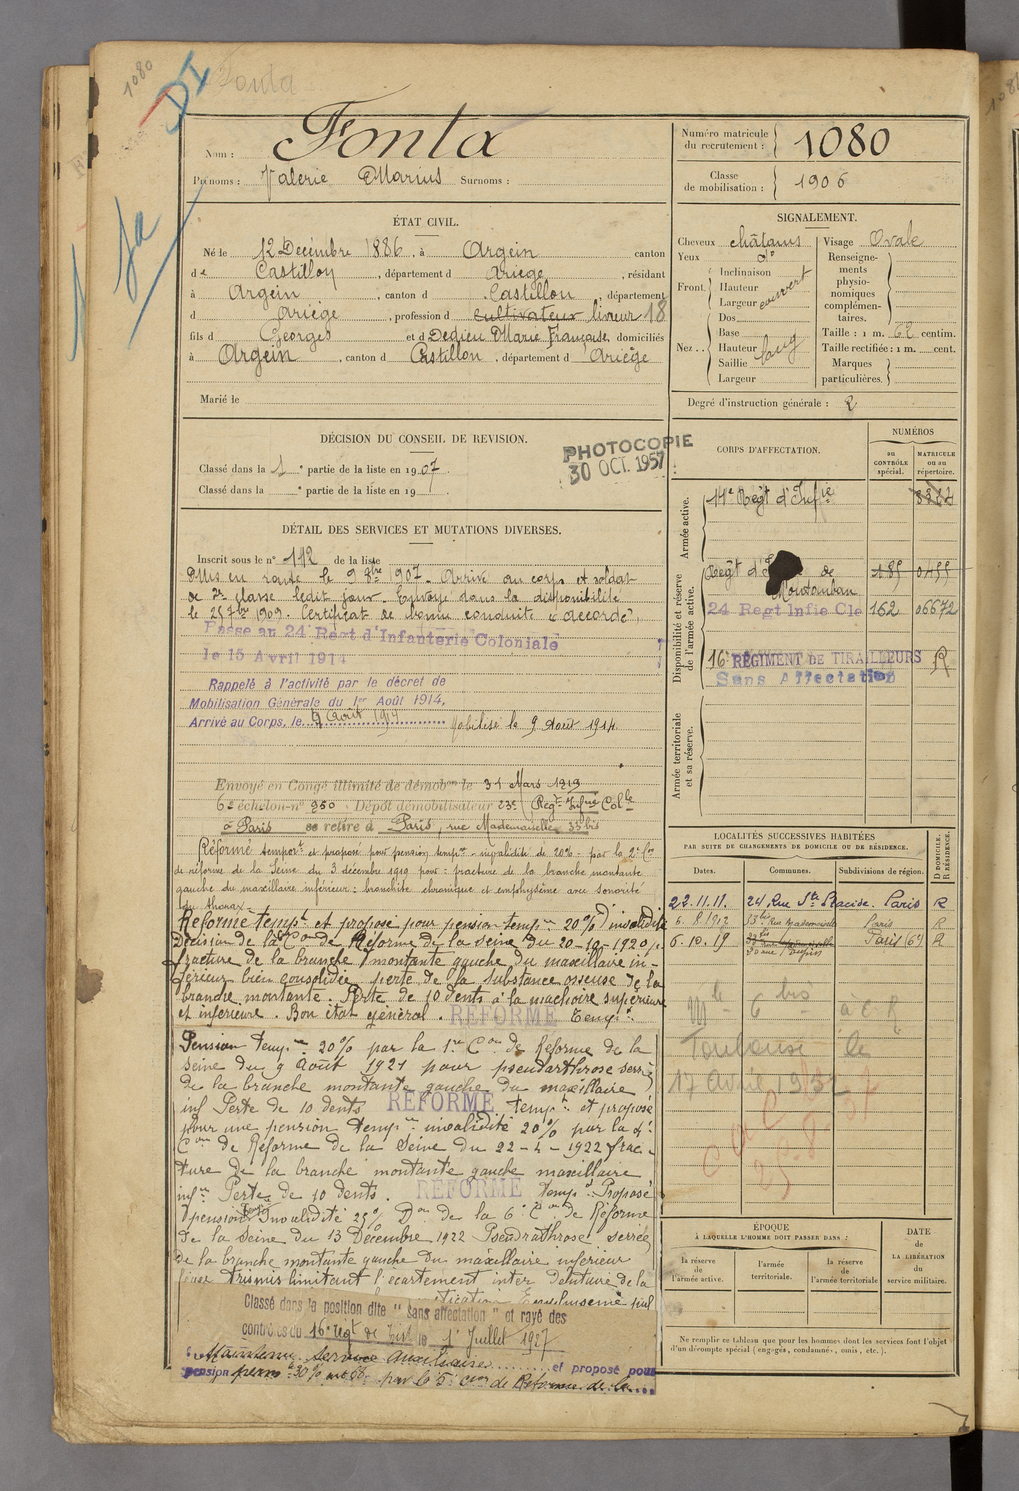 1080
DI
Fonta
Nom : Fonta
Prénoms : Valerie Marius Surnoms :
Numéro matricule du recrutement : 1080
Classe de mobilisation : 1906
ÉTAT CIVIL.
Né le 12 Decembre 1886, à Argein canton
de Castillon, département d Ariège, résidant
à Argein, canton d Castillon, département
d Ariège, profession de cultivateur livreur 18
fils d Georges et d Dedieu Marie Françoise, domiciliés
à Argein, canton d Castillon, département d Ariège
Marié le
SIGNALEMENT.
Cheveux châtains
Yeux do
Front. Inclinaison
Hauteur
Largeur couvert
Nez. Dos
Base
Hauteur
Saillie long
Largeur
Visage Ovale
Renseigne-
ments
physio-
nomiques
complémen-
taires.
Taille : 1 m. 62 centim.
Taille rectifiée : 1 m. cent.
Marques
particulières.
Degré d'instruction générale : 2
DÉCISION DU CONSEIL DE REVISION.
Classé dans la 1e partie de la liste en 1907.
Classé dans la e partie de la liste en 19
PHOTOCOPIE
30 OCT. 1957
DÉTAIL DES SERVICES ET MUTATIONS DIVERSES.
Inscrit sous le n° 112 de la liste
Mis en route le 9 8bre 1907. Arrivé au corps et soldat
de 2e classe ledit jour. Envoyé dans la disponibilité
le 25 7bre 1909. Certificat de bonne conduite "accordé"
Passé au 24 Regt d'Infanterie Coloniale
le 15 Avril 1914
Rappelé à l'activité par le décret de
Mobilisation Générale du 1er Août 1914,
Arrivé au Corps, le 9 Août 1914 Mobilisé le 9 Août 1914.
Envoyé en Congé illimité de démobon le 31 Mars 1919
6e échelon n° 950 : Dépôt démobilisateur 23e Regt Infrie Colle
à Paris se retire à Paris, rue Mademoiselle 53 bis
Réformé temport et proposé pour pension tempre invalidité de 20% par la 2e Con
de réforme de la Seine du 3 décembre 1919 pour : fracture de la branche montante
gauche du maxillaire inférieur : bronchite chronique et emphysème avec sonorité
du thorax.
Réformé tempt et proposé pour pension tempre 20% d'invalidité
Décision de la Con de Réforme de la Seine du 20-10-1920 p.
fracture de la branche montante gauche du maxillaire in-
férieur bien consolidée, perte de la substance osseuse de la
branche montante. Perte de 10 dents à la machoire supérieure
et inférieure. Bon état général. RÉFORMÉ Tempt.
Pension tempre 20% par la 1re Con de Réforme de la
Seine du 9 Août 1921 pour pseudarthrose serrée
de la branche montante gauche du maxillaire
inf Perte de 10 dents RÉFORMÉ tempt et proposé
pour une pension tempre invalidité 20% par la
Con de Réforme de la Seine du 22-4-1922 frac-
ture de la branche montante gauche maxillaire
infre Perte de 10 dents. RÉFORMÉ tempt Proposé
pension Invalidité 25% Don de la 6e Con de Réforme
de la Seine du 13 Decembre 1922 Pseudrathrose serrée
de la branche montante gauche du maxillaire inférieur
Trismis limitant l'écartement inter dentaire de la
Classé dans la position dite "sans affectation" et rayé des
contrôles du 16e Regt de Tirl le 1er Juillet 1927
Maintenu Service Auxiliaire et proposé pour
pension perm 30% par la 5e Con de Réforme de la
CORPS D'AFFECTATION.
NUMÉROS
au CONTRÔLE spécial.
MATRICULE ou au répertoire.
Armée active.
14e Regt d'Infie
Disponibilité et réserve de l'armée active.
Regt d' de Montauban 185 0455
24 Regt Infie Cle 162 06672
16e RÉGIMENT DE TIRAILLEURS
Sans Affectation
Armée territoriale et sa réserve.
LOCALITÉS SUCCESSIVES HABITÉES
PAR SUITE DE CHANGEMENTS DE DOMICILE OU DE RÉSIDENCE.
D DOMICILE. R RÉSIDENCE.
Dates. Communes. Subdivisions de région.
22.11.11. 24, Rue Ste Placide. Paris R
6.8.1912 53 bis Rue Mademoiselle Paris R
6.10.19 Paris (6e) R
Toulouse le
17 avril 1932
ÉPOQUE
À LAQUELLE L'HOMME DOIT PASSER DANS :
la réserve de l'armée active.
l'armée territoriale.
la réserve de l'armée territoriale
DATE de LA LIBÉRATION du service militaire.
Ne remplir ce tableau que pour les hommes dont les services font l'objet
d'un décompte spécial (engagés, condamnés, omis, etc.).